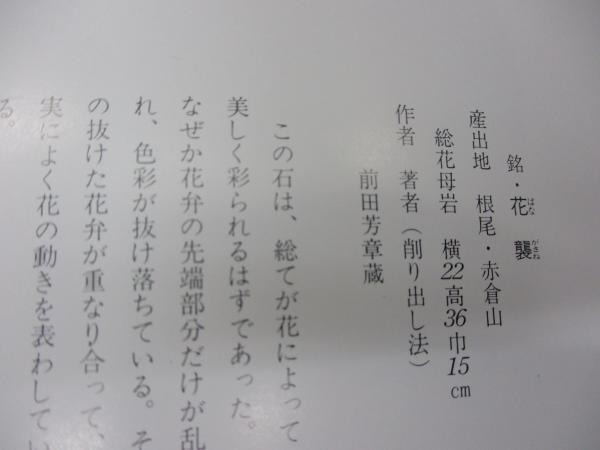 銘・花襲
はな
がさね
産出地 根尾・赤倉山
総花母岩 横22高36巾15cm
作者 著者(削り出し法)
前田芳章蔵
この石は、総てが花によって
美しく彩られるはずであった。
なぜか花弁の先端部分だけが乱
れ、色彩が抜け落ちている。そ
の抜けた花弁が重なり合って、
実によく花の動きを表わしてい
る。